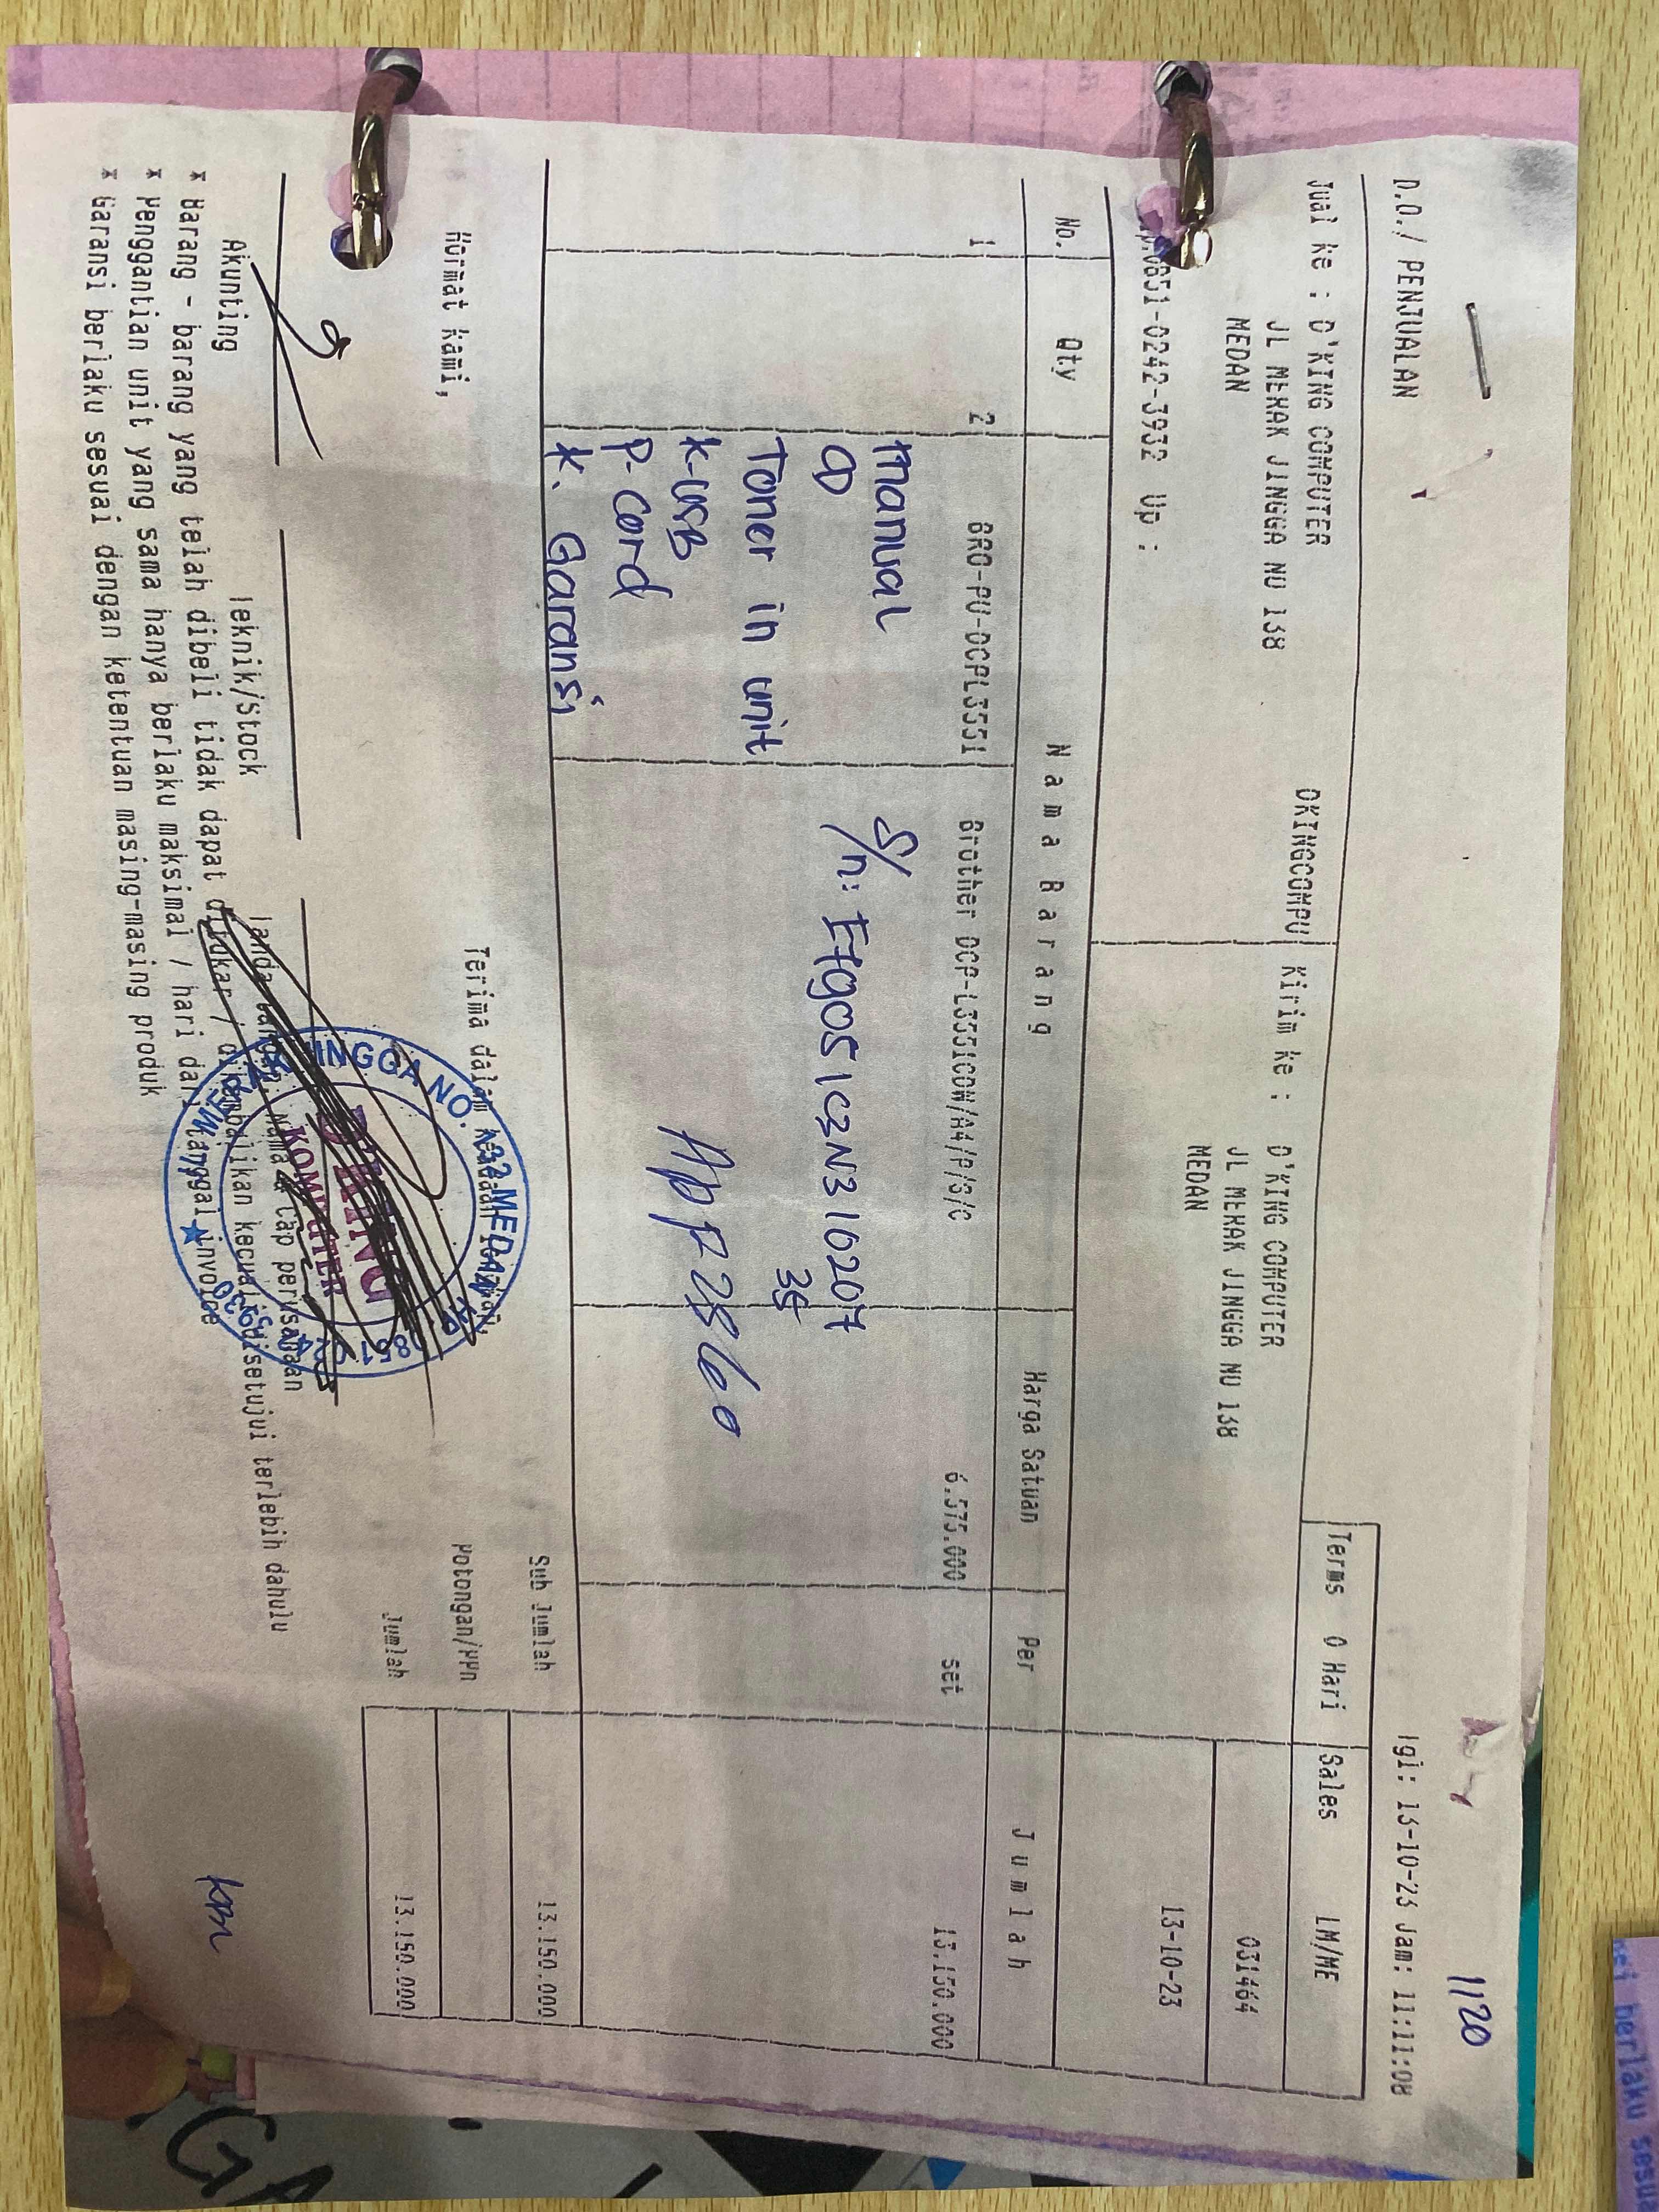 1120
D.O./ PENJUALAN
Tgl: 13-10-23 Jam: 11:11:08
Jual ke : D'KING COMPUTER DKINGCOMPU
JL MERAK JINGGA NO 138
MEDAN
0851-0242-3932 Up :
Kirim ke : D'KING COMPUTER
JL MERAK JINGGA NO 138
MEDAN
Terms 0 Hari Sales LM/ME
031464
13-10-23
No. Qty Nama Barang Harga Satuan Per Jumlah
1 2 BRO-PU-DCPL3551 Brother DCP-L3551CDW/A4/P/S/C 6.575.000 set 13.150.000
Manual
CD
Toner in unit
K-USB
P-Cord
K. Garansi
35
Sub Jumlah 13.150.000
Potongan/PPn
Jumlah 13.150.000
Hormat kami,
Terima dalam keadaan
Akunting
Teknik/Stock
Tanda tangan, Nama & Cap perusahaan
* Barang - barang yang telah dibeli tidak dapat ditukar / dikembalikan kecuali disetujui terlebih dahulu
* Penggantian unit yang sama hanya berlaku maksimal 7 hari dari tanggal invoice
* Garansi berlaku sesuai dengan ketentuan masing-masing produk
MERAK JINGGA NO. MEDAN
D'KING
KOMPUTER